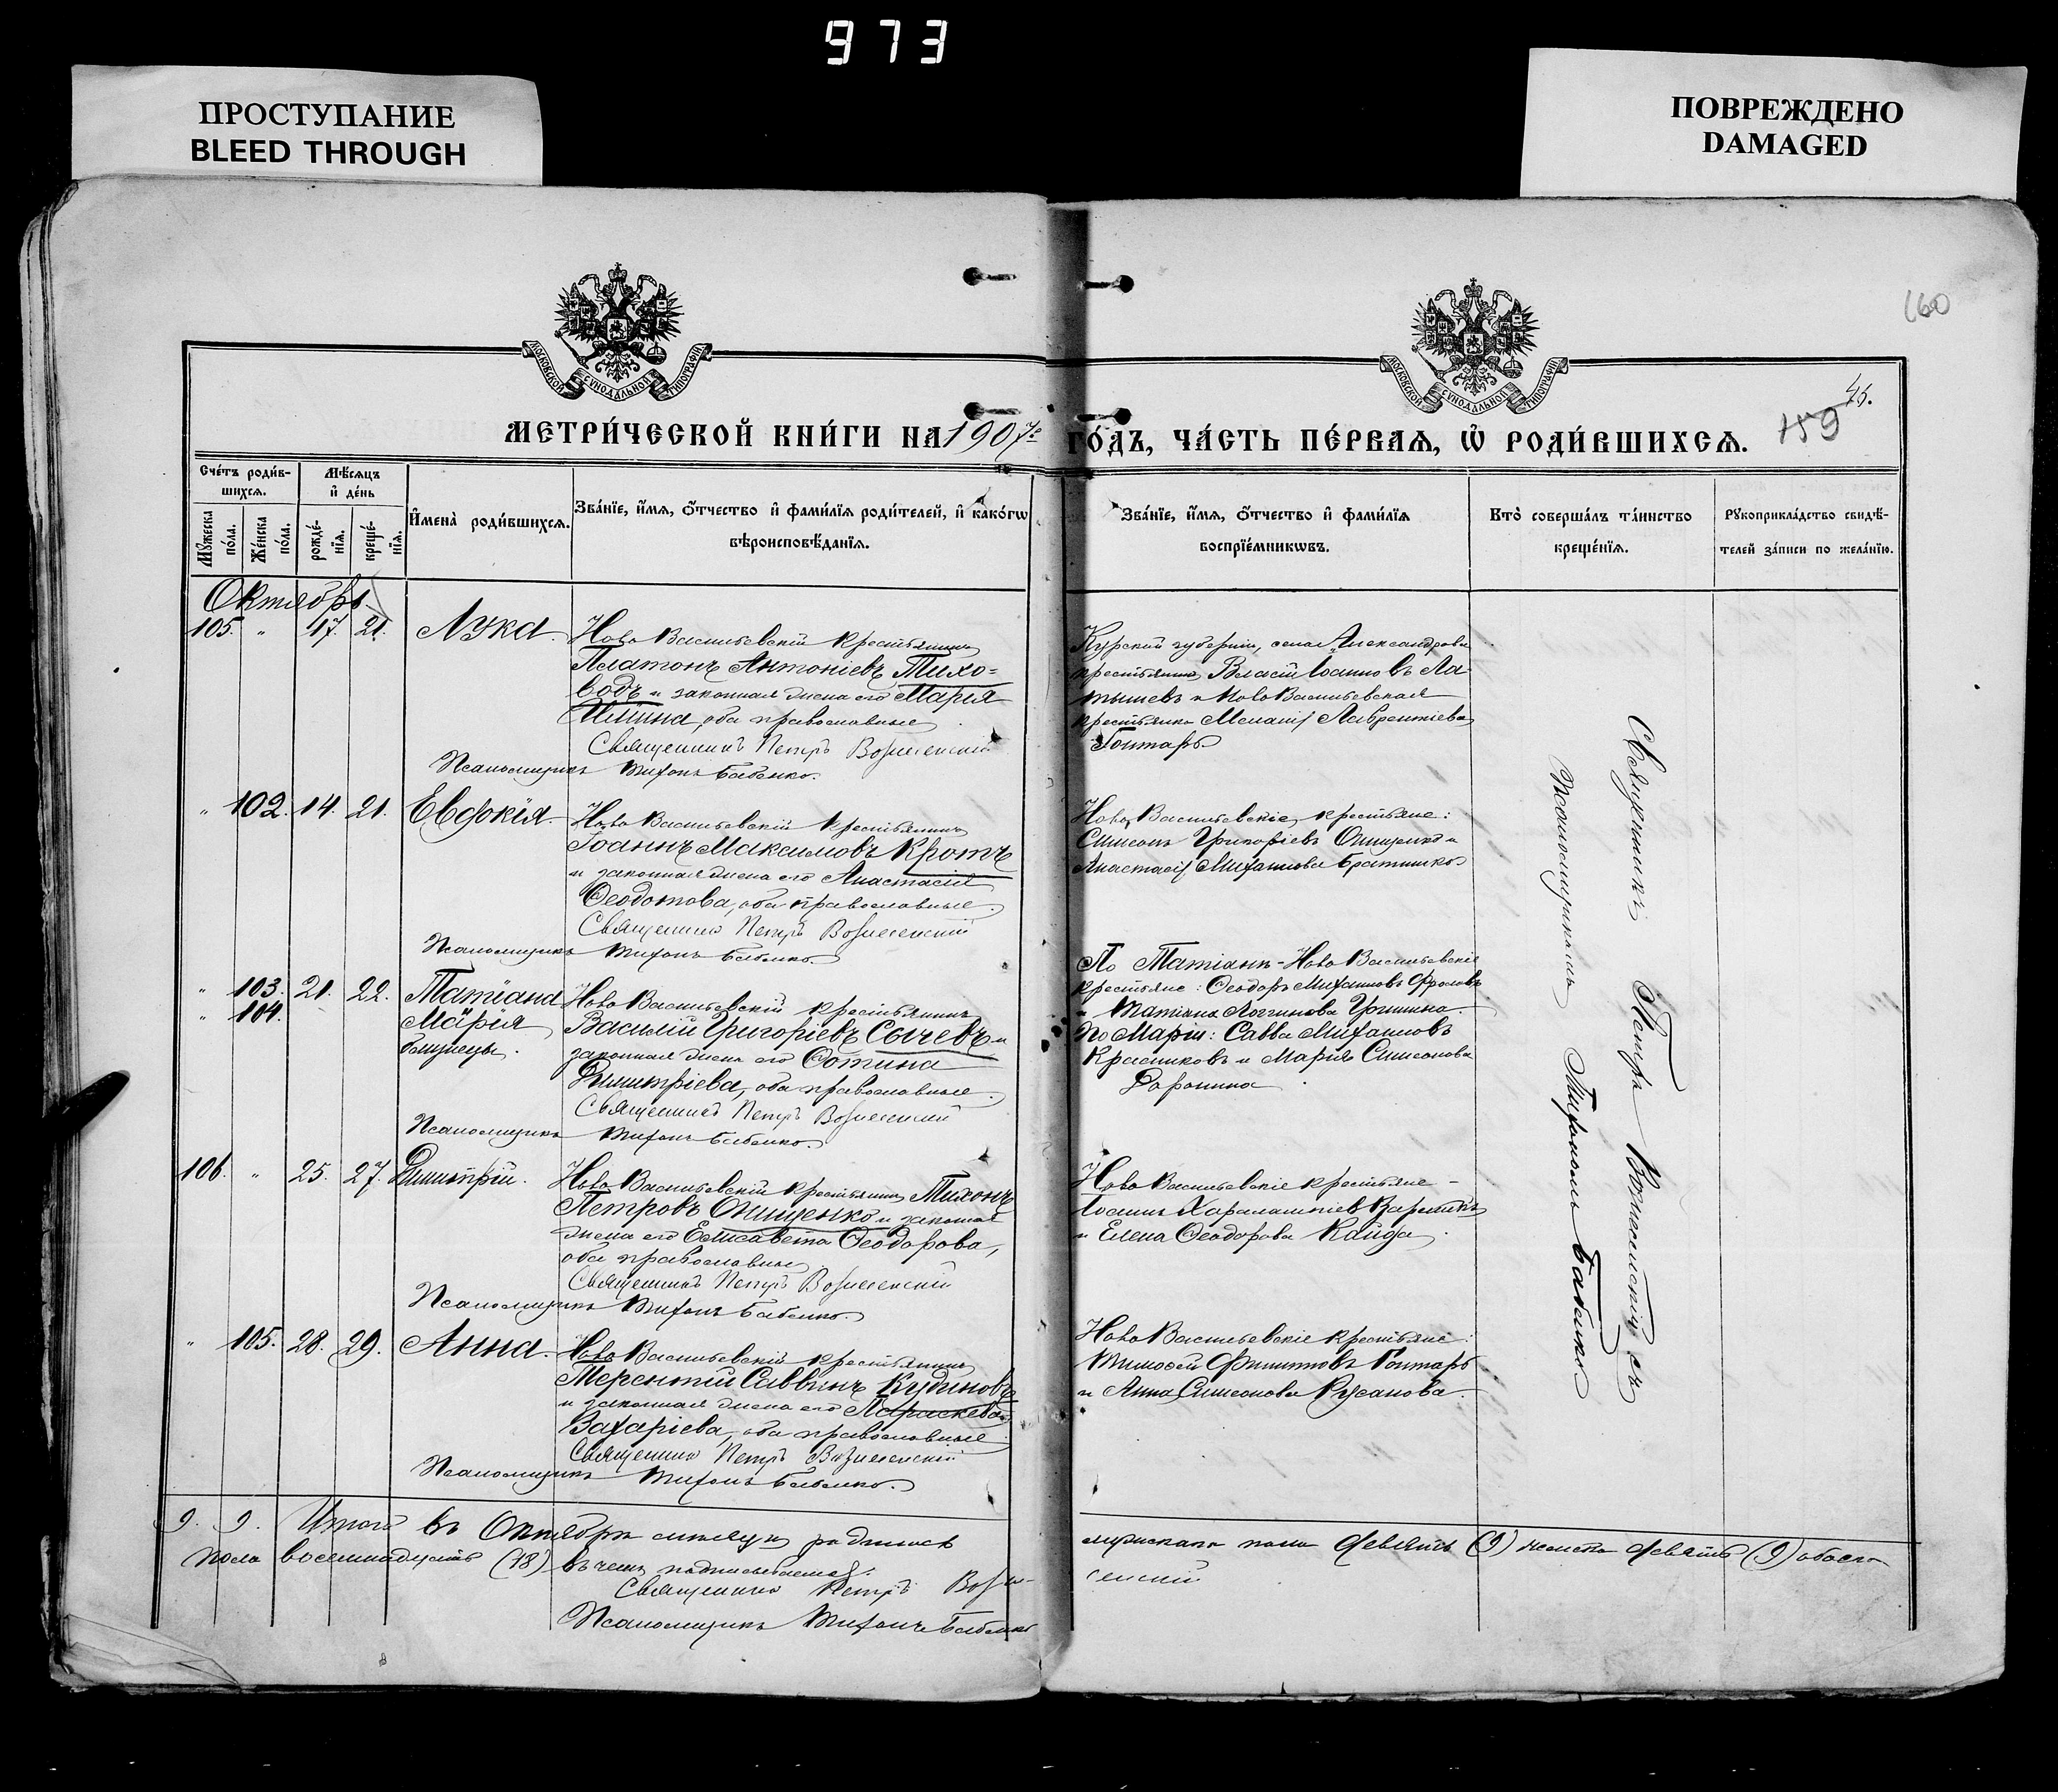 973
ПРОСТУПАНИЕ
BLEED THROUGH
ПОВРЕЖДЕНО
DAMAGED
160
МОСКОВСКОЙ СѴНОДАЛЬНОЙ ТИПОГРАФІИ
МОСКОВСКОЙ СѴНОДАЛЬНОЙ ТИПОГРАФІИ
159
МЕТРИ́ЧЕСКОЙ КНИ́ГИ НА 1907й ГО́ДЪ, ЧА́СТЬ ПЕ́РВАЯ, Ѡ҆ РОДИ́ВШИХСЯ.
Сче́тъ роди́в-
шихся.
Мѣ́сяцъ
и҆ де́нь
Мꙋ́жеска по́ла.
Же́нска по́ла.
рожде́-
нїя.
креще́-
нїя.
И҆мена̀ роди́вшихся.
Зва́нїе, и҆́мя, ѻ҆́тчество и҆ фами́лїя роди́телей, и҆ како́гѡ
вѣроисповѣ́данїя.
Зва́нїе, и҆́мя, ѻ҆́тчество и҆ фами́лїя
воспрїе́мникѡвъ.
Кто̀ соверша́лъ та́инство
креще́нїя.
Рꙋкоприкла́дство свидѣ́-
телей за́писи по жела́нїю.
Октябрь
105. " 17. 21. Лука.
Ново Васильевскій крестьянинъ
Платонъ Антоніевъ Тихо-
водъ и законная жена его Марія
Ильина, оба православные
Священникъ Петръ Вознесенскій
Псаломщикъ Тихонъ Бабенко.
Курской губерніи, села Александровки
крестьянинъ Власій Іоанновъ Ла-
тышевъ и Ново Васильевская
крестьянка Меланія Лаврентіева
Гонтарь
" 102. 14. 21. Евдокія.
Ново Васильевскій крестьянинъ
Іоаннъ Максимовъ Кротъ
и законная жена его Анастасія
Ѳеодотова, оба православные.
Священникъ Петръ Вознесенскій
Псаломщикъ Тихонъ Бабенко.
Ново Васильевскіе крестьяне:
Симеонъ Григоріевъ Онищенко и
Анастасія Михаилова Братишко
" 103. 21. 22. Татіана
" 104. Марія
близнецы.
Ново Васильевскій крестьянинъ
Василій Григоріевъ Сычевъ и
законная жена его Фотина
Димитріева, оба православные.
Священникъ Петръ Вознесенскій
Псаломщикъ Тихонъ Бабенко.
По Татіанѣ - Ново Васильевскіе
крестьяне: Ѳеодоръ Михаиловъ Фроловъ
и Татіана Логгинова Гришина.
По Маріи: Савва Михаиловъ
Красниковъ и Марія Симеонова
Доронина
106. " 25. 27. Димитрій.
Ново Васильевскій крестьянинъ Тихонъ
Петровъ Онищенко и законная
жена его Елисавета Ѳеодорова,
оба православные
Священникъ Петръ Вознесенскій
Псаломщикъ Тихонъ Бабенко.
Ново Васильевскіе крестьяне -
Іоаннъ Харалампіевъ
и Елена Ѳеодорова Кайда.
" 105. 28. 29. Анна.
Ново Васильевскій крестьянинъ
Терентій Саввинъ Кудиновъ
и законная жена его Параскева
Захаріева, оба православные
Священникъ Петръ Вознесенскій
Псаломщикъ Тихонъ Бабенко.
Ново Васильевскіе крестьяне:
Тимоѳей Филипповъ Гонтарь
и Анна Симеонова Русанова.
Священникъ Петръ Вознесенскій съ
Псаломщикомъ Тихономъ Бабенко
9. 9. Итого въ Октябрѣ мѣсяцѣ родилось мужескаго пола девять (9) женска девять (9) обоего
пола восемнадцать (18) въ чемъ подписываемся.
Священникъ Петръ Возне-
сенскій
Псаломщикъ Тихонъ Бабенко